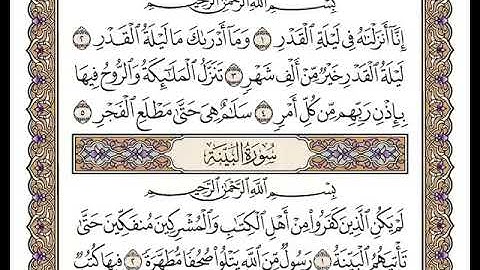 بِسْمِ ٱللَّهِ ٱلرَّحْمَٰنِ ٱلرَّحِيمِ
إِنَّآ أَنزَلْنَٰهُ فِى لَيْلَةِ ٱلْقَدْرِ ١ وَمَآ أَدْرَىٰكَ مَا لَيْلَةُ ٱلْقَدْرِ ٢
لَيْلَةُ ٱلْقَدْرِ خَيْرٌ مِّنْ أَلْفِ شَهْرٍ ٣ تَنَزَّلُ ٱلْمَلَٰٓئِكَةُ وَٱلرُّوحُ فِيهَا
بِإِذْنِ رَبِّهِم مِّن كُلِّ أَمْرٍ ٤ سَلَٰمٌ هِىَ حَتَّىٰ مَطْلَعِ ٱلْفَجْرِ ٥
سُورَةُ ٱلْبَيِّنَةِ
بِسْمِ ٱللَّهِ ٱلرَّحْمَٰنِ ٱلرَّحِيمِ
لَمْ يَكُنِ ٱلَّذِينَ كَفَرُوا۟ مِنْ أَهْلِ ٱلْكِتَٰبِ وَٱلْمُشْرِكِينَ مُنفَكِّينَ حَتَّىٰ
تَأْتِيَهُمُ ٱلْبَيِّنَةُ ١ رَسُولٌ مِّنَ ٱللَّهِ يَتْلُوا۟ صُحُفًا مُّطَهَّرَةً ٢ فِيهَا كُتُبٌ